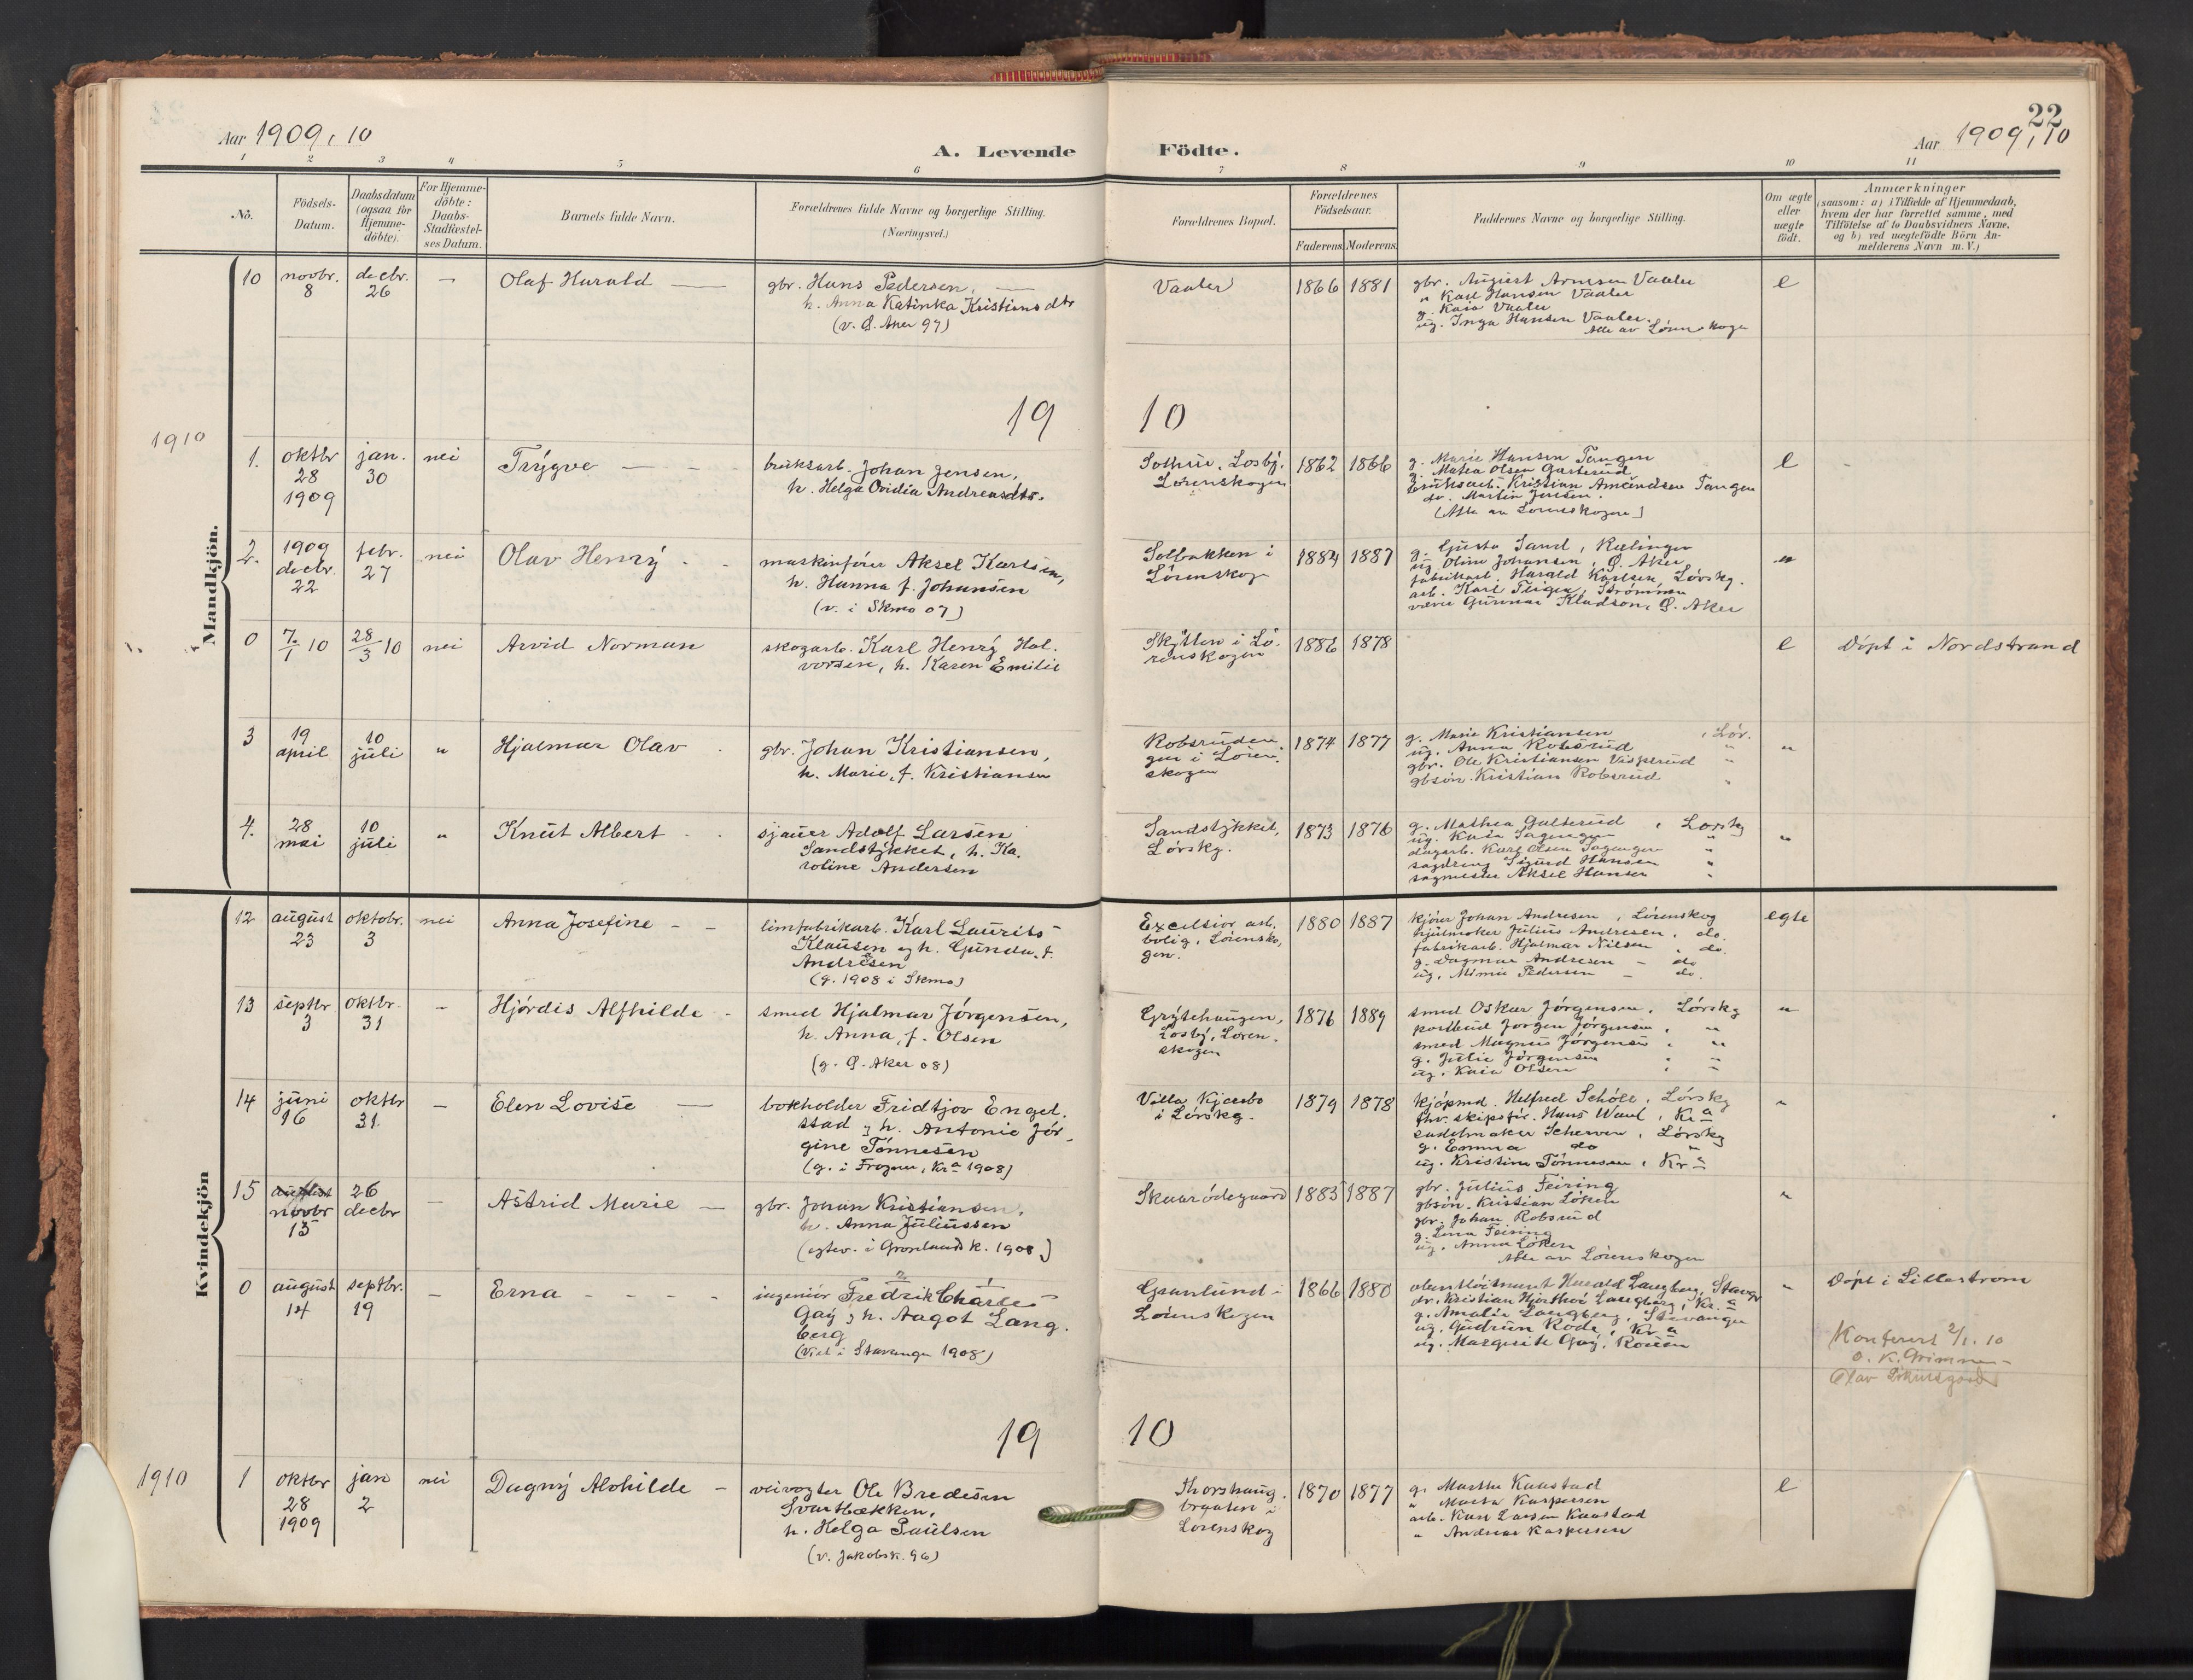 22
Aar 1909, 10
A. Levende Födte.
Aar 1909, 10
1 2 3 4 5 6 7 8 9 10 11
No.
Födsels-
Datum.
Daabsdatum
(ogsaa for
Hjemme-
döbte).
For Hjemme-
döbte:
Daabs-
Stadfæstel-
ses Datum.
Barnets fulde Navn.
Forældrenes fulde Navne og borgerlige Stilling.
(Næringsvei.)
Forældrenes Bopæl.
Forældrenes
Födselsaar.
Faderens. Moderens.
Faddernes Navne og borgerlige Stilling.
Om ægte
eller
uægte
födt.
Anmærkninger
(saasom: a) i Tilfælde af Hjemmedaab,
hvem der har forrettet samme, med
Tilföielse af to Daabsvidners Navne,
og b) ved uægtefödte Börn An-
melderens Navn m. V.)
Mandkjön.
10
novbr.
8
decbr.
26
—
Olaf Harald —
gbr. Hans Pedersen, —
h. Anna Katinka Kristiansdtr
(v. Ø. Aker 97)
Vaaler
1866 1881
gbr. August Arnesen Vaaler
" Karl Hansen Vaaler
g. Kaia Vaaler
ug. Inga Hansen Vaaler.
Alle av Lørenskogen
e
19 10
1910
1.
oktbr
28
1909
jan.
30
nei
Trygve — - -
bruksarb. Johan Jensen,
h. Helga Ovidia Andreasdtr.
Losby.
Lørenskogen
1862 1866
g. Marie Hansen Tangen
g. Matea Olsen Gasterud
bruksarb. Kristian Amundsen Tangen
do. Martin Jensen.
(Alle av Lørenskogen)
e
2.
1909
decbr.
22
febr.
27
nei
Olav Henry - -
maskinfører Aksel Karlsen,
h. Hanna f. Johansen
(v. i Skmo 07)
Solbakken i
Lørenskog
1884 1887
g. Gusta Sand, Rælingen
ug. Oline Johansen, Ø. Aker
fabrikarb. Harald Karlsen, Lørskg.
arb. Karl Strømmen
Gunnar Kladson, Ø. Aker
"
0
7/1 10
28/3 10
nei
Arvid Norman
skogarb. Karl Henry Hal-
vorsen, h. Karen Emilie
Skytten i Lø-
renskogen
1886 1878
e
Døpt i Nordstrand
3
19
april
10
juli
"
Hjalmar Olav -
gbr. Johan Kristiansen,
h. Marie, f. Kristiansen
Robsruden-
gen i Løren-
skogen
1874 1877
g. Marie Kristiansen , Lør.
ug. Anna Robsrud "
gbr. Ole Kristiansen Visperud "
gbsøn. Kristian Robsrud "
"
4.
28
mai
10
juli
"
Knut Albert - -
sjauer Adolf Larsen
Sandstykket, h. Ka-
roline Andersen
Sandstykket,
Lørskg.
1873 1876
g. Mathea Galterud , Lørskg
ug. Kaia Sagengen "
dagarb. Karl Olsen Sagengen "
sagdreng Sigurd Hansen "
sagmester Aksel Hansen "
"
Kvindekjön
12
august
23
oktobr.
3
nei
Anna Josefine - -
limfabrikarb. Karl Laurits
Klausen og h. Gunda, f.
Andresen
(g. 1908 i Skmo)
Excelsior arb.
bolig, Lørensko-
gen.
1880 1887
kjører Johan Andresen , Lørenskog
hjulmaker Julius Andresen , do.
fabrikarb. Hjalmar Nilsen , do.
g. Dagmar Andresen — do
ug. Mimi Pedersen — do.
egte
13
septbr
3
oktbr.
31
—
Hjørdis Alfhilde -
smed Hjalmar Jørgensen,
h. Anna, f. Olsen
(g. Ø. Aker 08)
Grytehaugen,
Losby, Løren-
skogen
1876 1889
smed Oskar Jørgensen, Lørskg
postbud Jørgen Jørgensen , "
smed Magnus Jørgensen , "
g. Julie Jørgensen , "
ug. Kaia Olsen , "
"
14
juni
16
oktbr
31.
—
Elen Lovise —
bokholder Fridtjov Engel-
stad og h. Antonie Jør-
gine Tønnesen
(g. i Frogner, Kra 1908)
Villa Kjærbo
i Lørskg.
1879 1878
kjøpmd. Helfred Schøll, Lørskg
fhv. skipsfør. Hans Waul, Kra
sadelmaker Scherven, Lørskg
g. Emma do "
ug. Kristine Tønnesen, Kra
"
15
novbr
15
26
decbr
—
Astrid Marie —
gbr. Johan Kristiansen,
h. Anna Juliussen
(egtev. i Grønlands k. 1908)
Skaarødegaard
1883 1887
gbr. Julius Feiring
gbsøn. Kristian Løken
gbr. Johan Robsrud
g. Lina Feiring
ug. Anna Løken
Alle av Lørenskogen
"
0
august
14
septbr.
19
—
Erna - - - -
ingeniør Fredrik Charles
Gay og h. Aagot Lang-
berg
(Viet i Stavanger 1908)
Granlund i
Lørenskogen
1866 1880
oberstløitnant Harald Langberg, Stavgr
dr. Kristian Hjorthøi Langberg, Kra
g. Amalie Langberg, Stavanger
ug. Gudrun Rode, Kra
ug. Margrite Gay, Rouen
"
Døpt i Lillestrøm
Konferert 2/1. 10
O. K. Grimnes
Olav
19 10
1910
1
oktbr
28
1909
jan
2
nei
Dagny Alvhilde -
veivogter Ole Bredesen
Svartbækken,
h. Helga Paulsen
(v. Jakobsk. 96)
Thorshaug-
braaten i
Lørenskog
1870 1877
g. Marthe Kaastad
" Marta Kaspersen
arb. Karl Larsen Kaastad
" Andreas Kaspersen
e